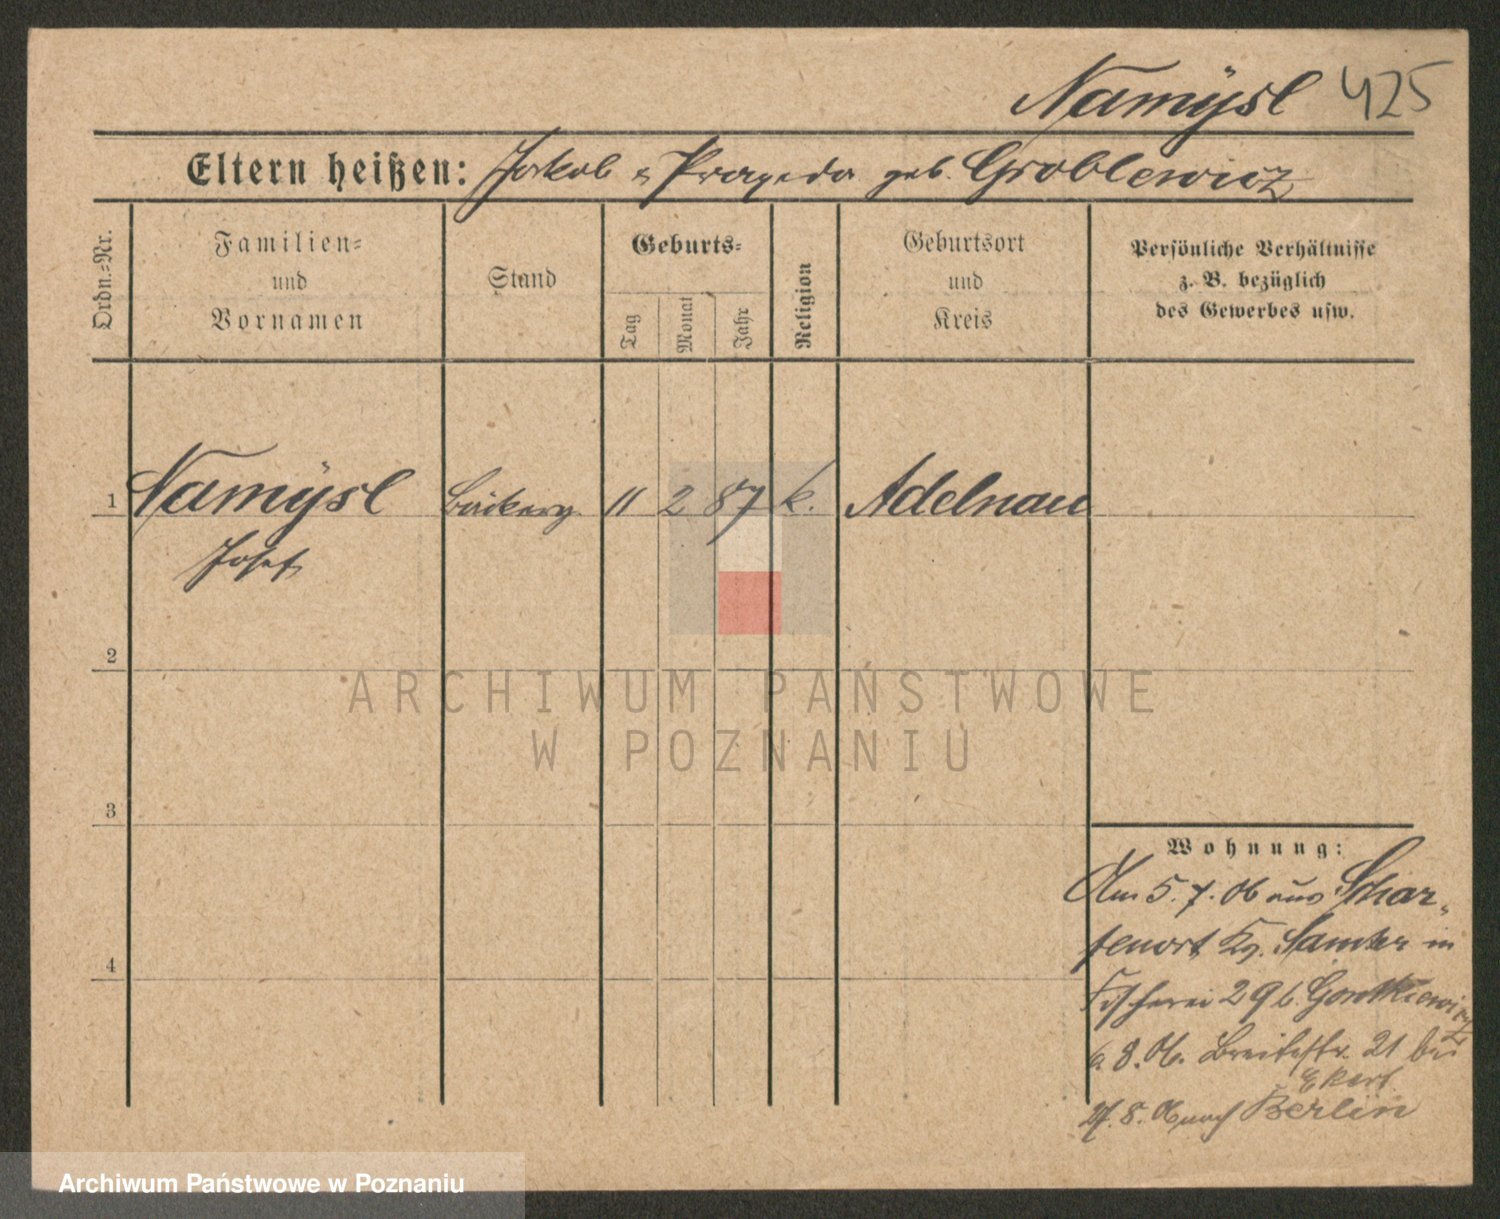 Namÿsl 425
Eltern heißen: Jakob u Praxeda geb. Groblewicz
Ordn.=Nr.
Familien=
und
Vornamen
Stand
Geburts=
Tag
Monat
Jahr
Religion
Geburtsort
und
Kreis
Persönliche Verhältnisse
z. B. bezüglich
des Gewerbes usw.
1 Namÿsl Bäckerg. 11 2 87 k. Adelnau
Josef
2
3
4
ARCHIWUM PAŃSTWOWE
W POZNANIU
Wohnung:
Am 5. 7. 06 aus Schar-
fenort Kr. Samter in
Fischerei 29 b.
6 8. 06. Breitestr. 21 bei
Ekert
27. 8. 06 nach Berlin
Archiwum Państwowe w Poznaniu